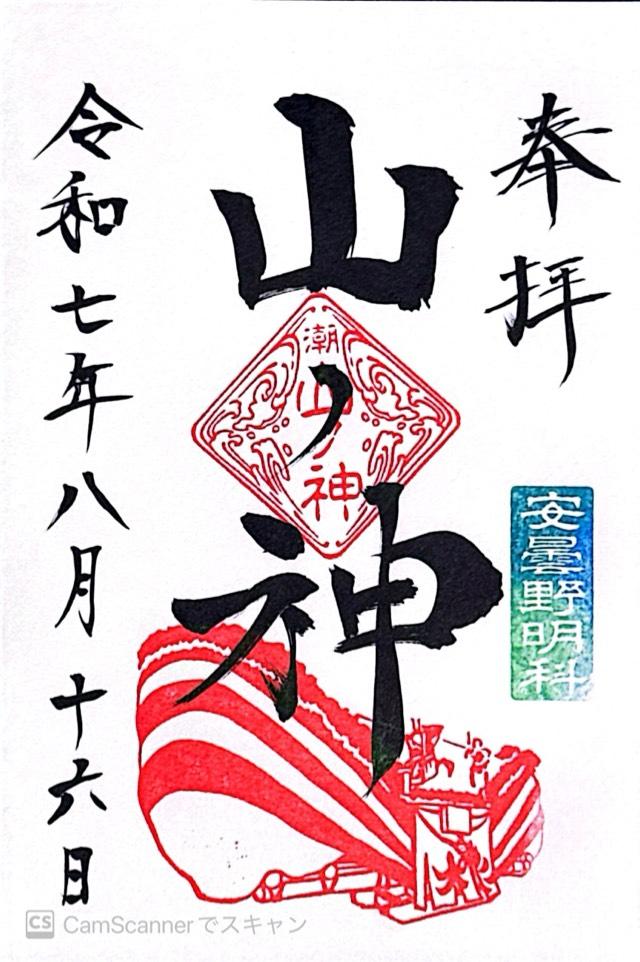 奉拝
安曇野明科
山ノ神
潮
山ノ神
令和七年八月十六日
CS CamScannerでスキャン